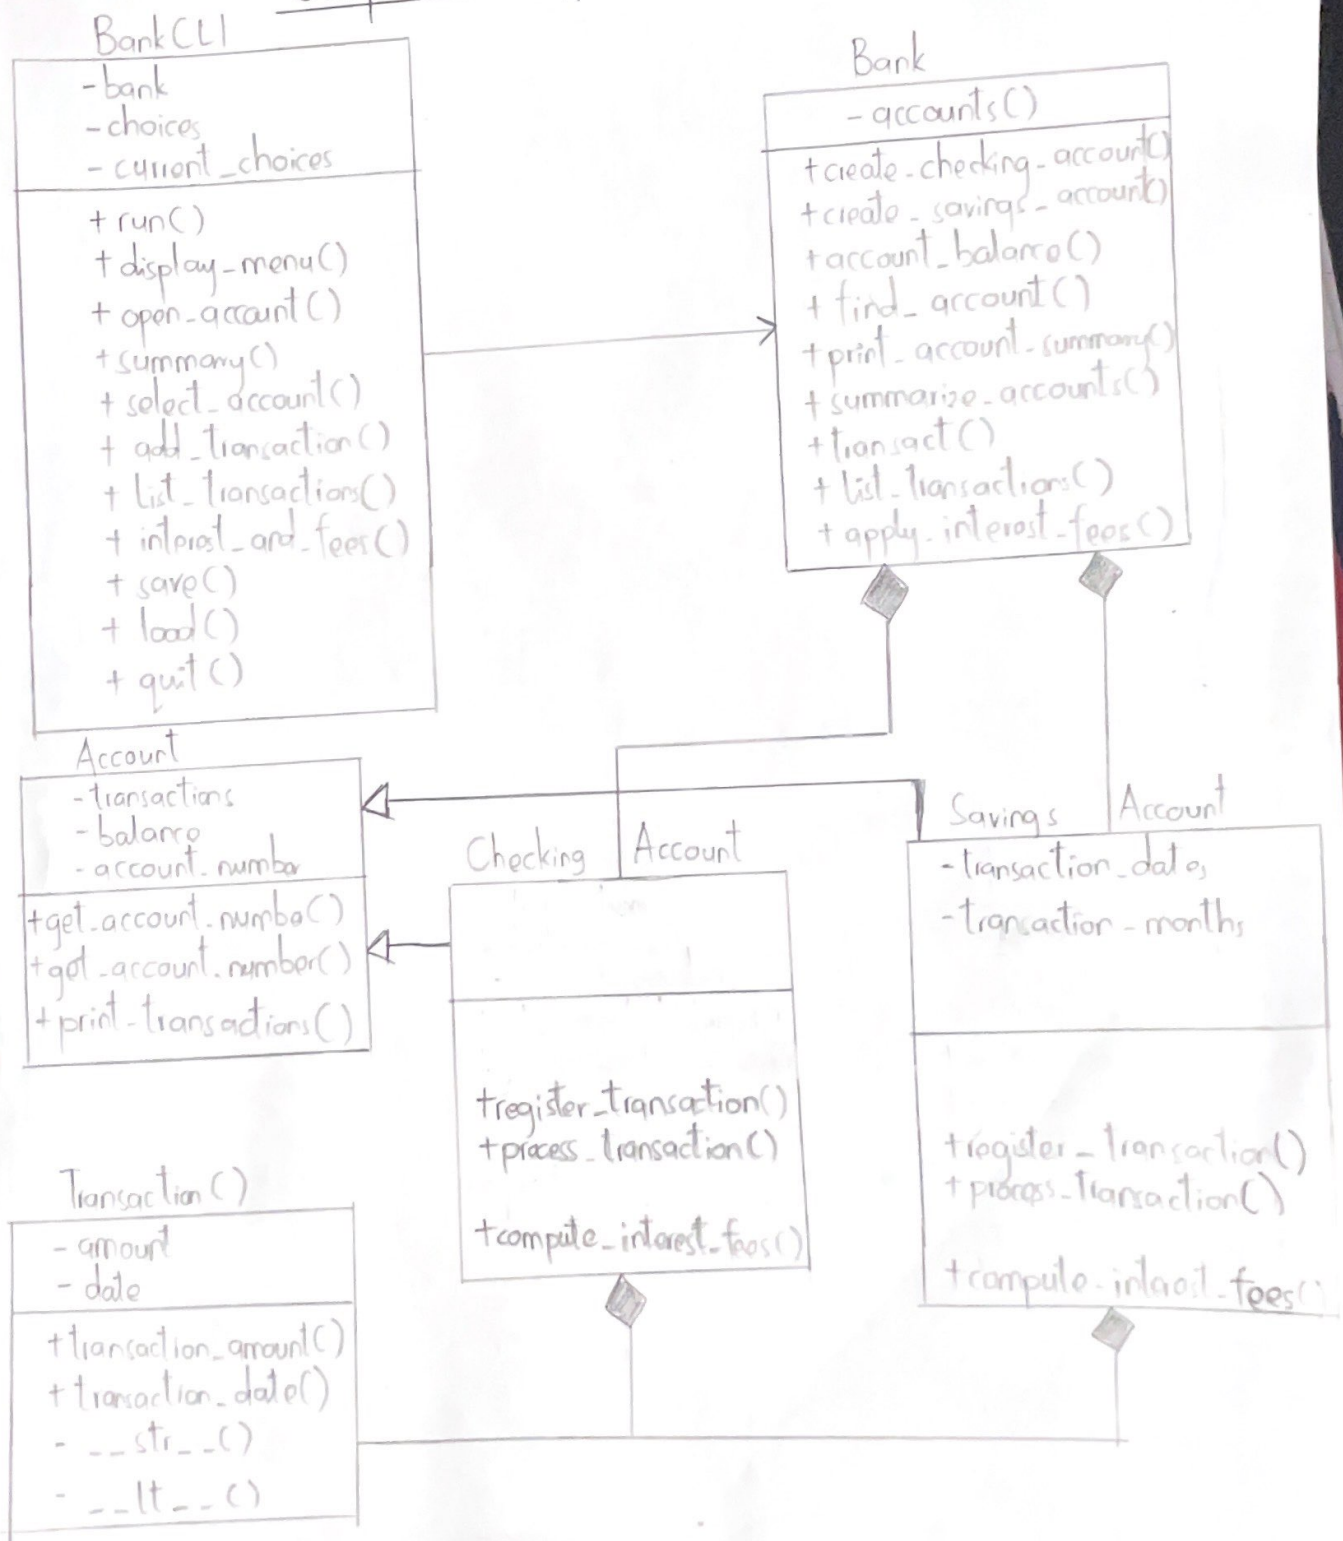 BankCLI
-bank
-choices
-current_choices
+run()
+display_menu()
+open_account()
+summary()
+select_account()
+add_transaction()
+list_transactions()
+interest_and_fees()
+save()
+load()
+quit()
Bank
-accounts()
+create_checking_account()
+create_savings_account()
+account_balance()
+find_account()
+print_account_summary()
+summarize_accounts()
+transact()
+list_transactions()
+apply_interest_fees()
Account
-transactions
-balance
-account_number
+get_account_numbe()
+get_account_number()
+print_transactions()
Checking Account
+register_transaction()
+process_transaction()
+compute_interest_fees()
Savings Account
-transaction_dates
-transaction_months
+register_transaction()
+process_transaction()
+compute_interest_fees()
Transaction()
-amount
-date
+transaction_amount()
+transaction_date()
-__str__()
-__lt__()